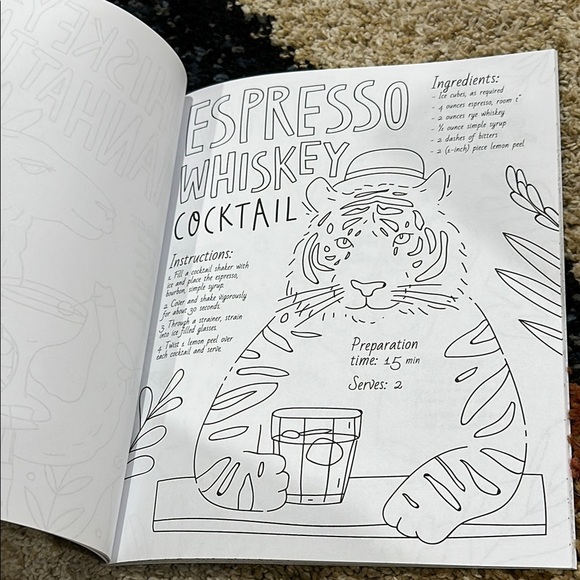 ESPRESSO
WHISKEY
COCKTAIL
Ingredients:
- Ice cubes, as required
- 4 ounces espresso, room t°
- 2 ounces rye whiskey
- ½ ounce simple syrup
- 2 dashes of bitters
- 2 (1-inch) piece lemon peel
Instructions:
1. Fill a cocktail shaker with
ice and place the espresso,
bourbon, simple syrup.
2. Cover and shake vigorously
for about 30 seconds.
3. Through a strainer, strain
into ice filled glasses.
4. Twist 1 lemon peel over
each cocktail and serve.
Preparation
time: 15 min
Serves: 2